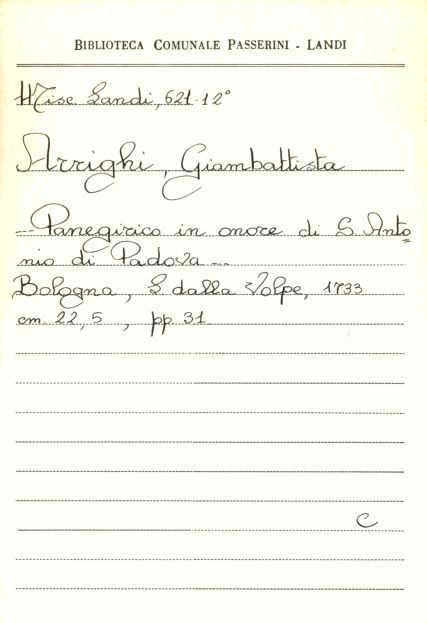 BIBLIOTECA COMUNALE PASSERINI - LANDI
Misc. Landi, 621-12°
Arrighi, Giambattista
... Panegirico in onore di S. Anto=
nio di Padova ...
Bologna, L. dalla Volpe, 1733
cm. 22,5 , pp. 31
C